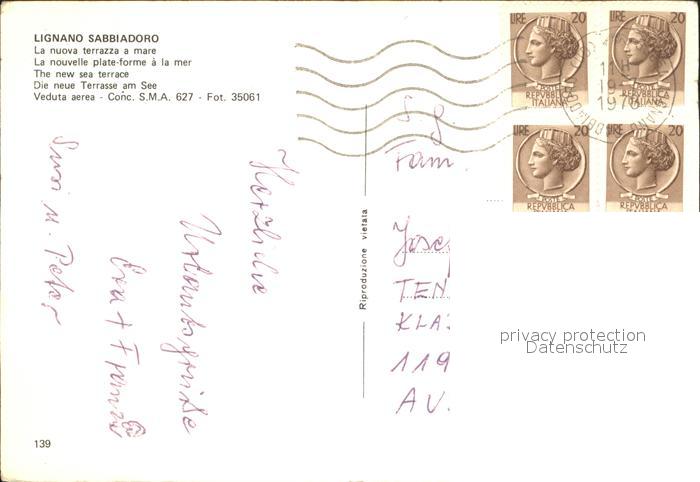 LIGNANO SABBIADORO
La nuova terrazza a mare
La nouvelle plate-forme à la mer
The new sea terrace
Die neue Terrasse am See
Veduta aerea - Conc. S.M.A. 627 - Fot. 35061
Herzliche
Urlaubsgrüße
Eva + Franz
Susi u. Peter
139
Riproduzione vietata
LIRE 20
POSTE
REPVBBLICA
ITALIANA
LIRE 20
POSTE
REPVBBLICA
ITALIANA
LIRE 20
POSTE
REPVBBLICA
LIRE 20
POSTE
REPVBBLICA
1976
Fam.
TEN
KLA
119
AV.
privacy protection
Datenschutz